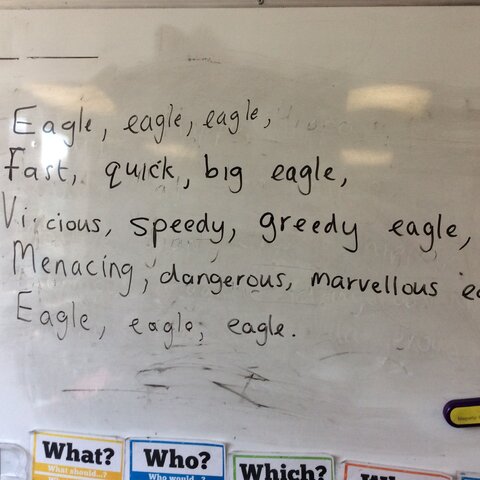 Eagle, eagle, eagle,
Fast, quick, big eagle,
Vicious, speedy, greedy eagle,
Menacing, dangerous, marvellous
Eagle, eagle, eagle.
What? Who? Which?
What should...? Who would...?